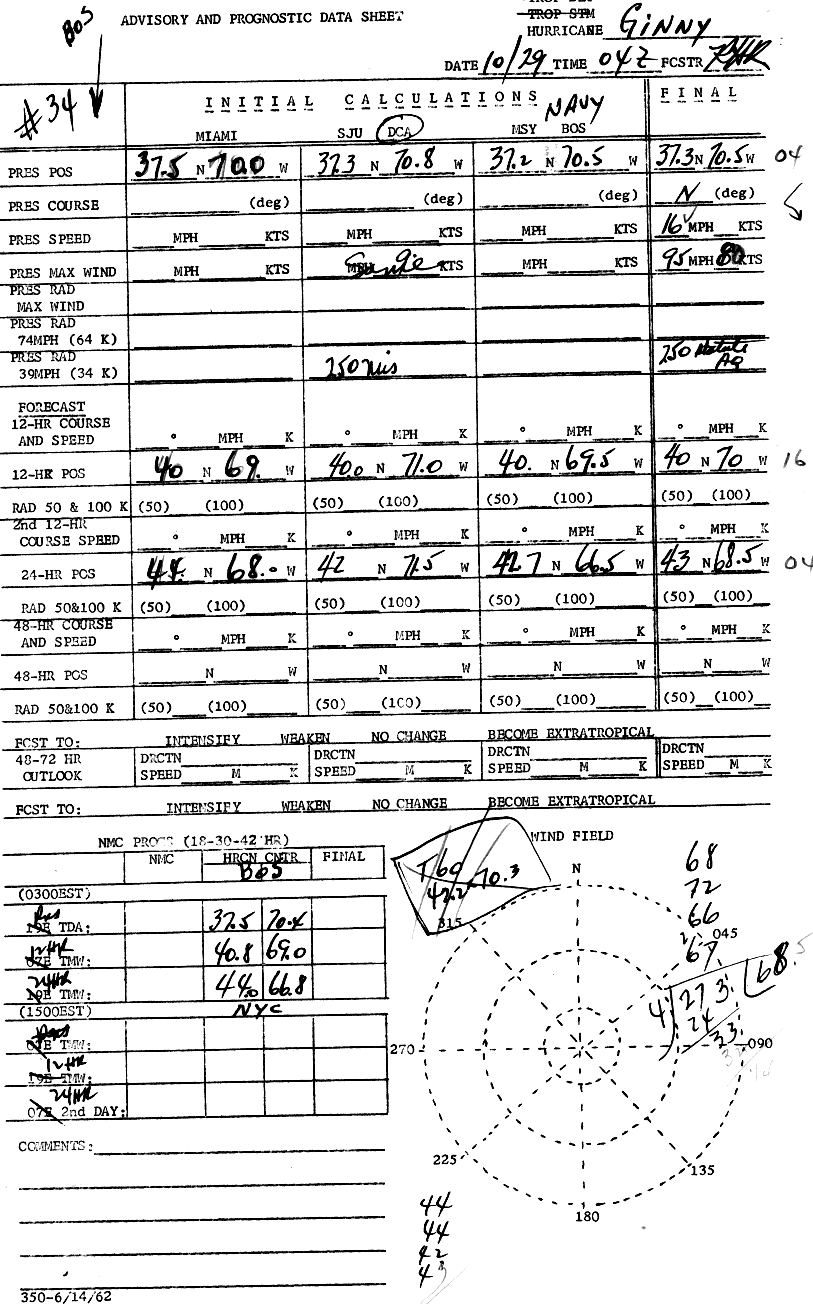 BOS
ADVISORY AND PROGNOSTIC DATA SHEET
TROP STM
HURRICANE GINNY
DATE 10/29 TIME 04Z FCSTR
#34
INITIAL CALCULATIONS FINAL
NAVY
MIAMI SJU DCA MSY BOS
PRES POS 37.5 N 70.0 W 37.3 N 70.8 W 37.2 N 70.5 W 37.3 N 70.5 W 04
PRES COURSE (deg) (deg) (deg) N (deg)
PRES SPEED MPH KTS MPH KTS MPH KTS 16 MPH KTS
PRES MAX WIND MPH KTS MPH Same KTS MPH KTS 95 MPH 80 KTS
PRES RAD
MAX WIND
PRES RAD
74MPH (64 K)
PRES RAD
39MPH (34 K) 250 mis 250
FORECAST
12-HR COURSE
AND SPEED ° MPH K ° MPH K ° MPH K ° MPH K
12-HR POS 40 N 69. W 40.0 N 71.0 W 40. N 69.5 W 40 N 70 W 16
RAD 50 & 100 K (50) (100) (50) (100) (50) (100) (50) (100)
2nd 12-HR
COURSE SPEED ° MPH K ° MPH K ° MPH K ° MPH K
24-HR POS 44. N 68.0 W 42 N 71.5 W 42.7 N 66.5 W 43 N 68.5 W 04
RAD 50&100 K (50) (100) (50) (100) (50) (100) (50) (100)
48-HR COURSE
AND SPEED ° MPH K ° MPH K ° MPH K ° MPH K
48-HR POS N W N W N W N W
RAD 50&100 K (50) (100) (50) (100) (50) (100) (50) (100)
FCST TO: INTENSIFY WEAKEN NO CHANGE BECOME EXTRATROPICAL
48-72 HR DRCTN DRCTN DRCTN DRCTN
OUTLOOK SPEED M K SPEED M K SPEED M K SPEED M K
FCST TO: INTENSIFY WEAKEN NO CHANGE BECOME EXTRATROPICAL
NMC PROGS (18-30-42 HR)
NMC HRCN CNTR FINAL
BOS
(0300EST)
Pres
19E TDA: 37.5 70.4
12HR
07E TMW: 40.8 69.0
24HR
19E TMW: 44.0 66.8
(1500EST) NYC
Pres
07E TMW:
12HR
19E TMW:
24HR
07E 2nd DAY:
COMMENTS:
350-6/14/62
WIND FIELD
T 60
42.2 70.3
N
045
090
135
180
225
270
315
68
72
66
67
4 273 68.5
24
33
44
44
42
43